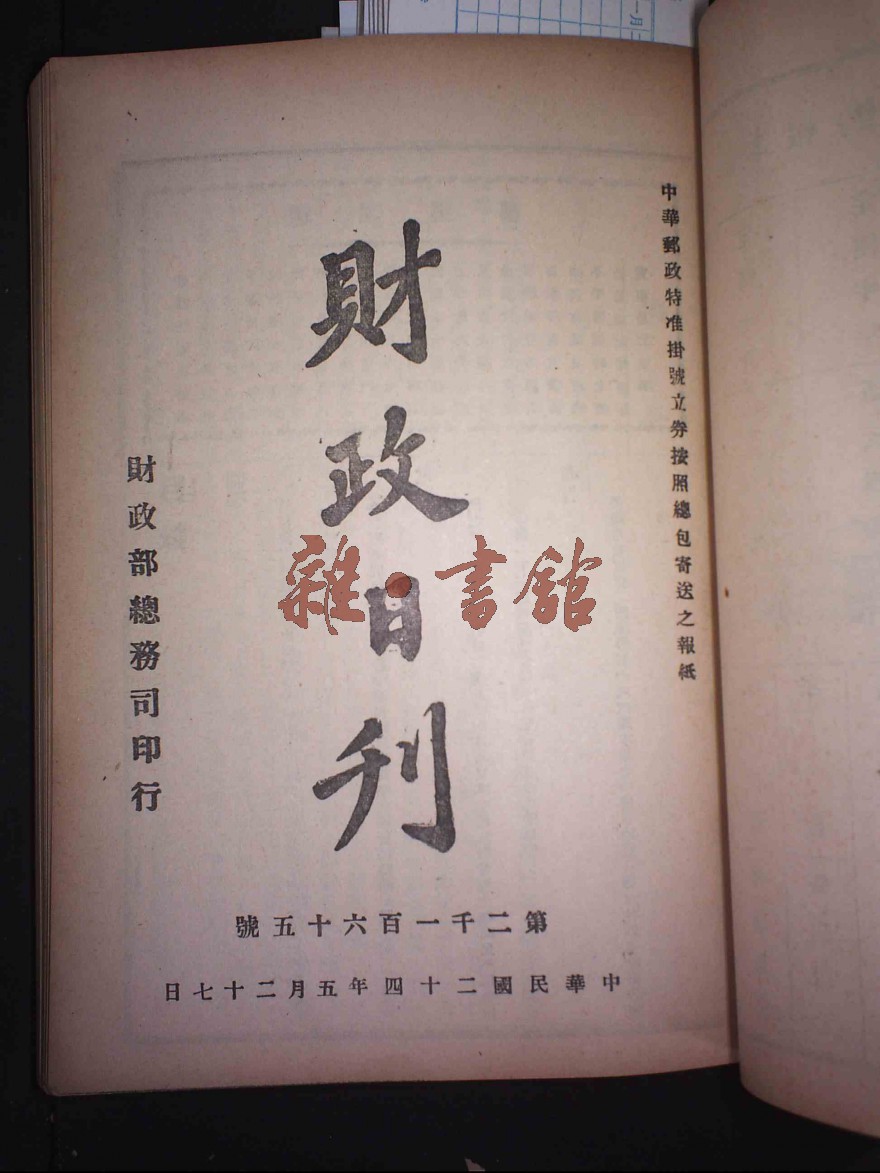 中華郵政特准掛號立券按照總包寄送之報紙
財政日刊
財政部總務司印行
第二千一百六十五號
中華民國二十四年五月二十七日
雜·書館